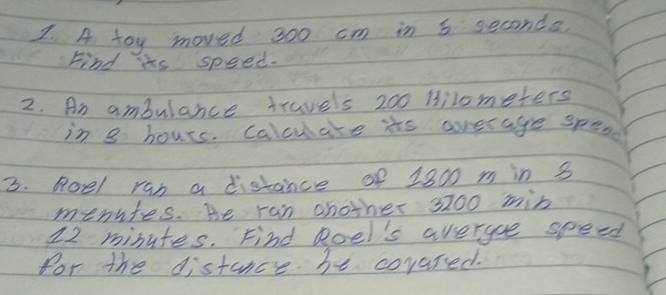 1. A toy moved 300 cm in 5 seconds.
Find its speed.
2. An ambulance travels 200 Kilometers
in 3 hours. Calculate its average speed
3. Roel ran a distance of 1800 m in 8
menutes. He ran another 3200 m in
12 minutes. Find Roel's avergae speed
for the distance he covared.